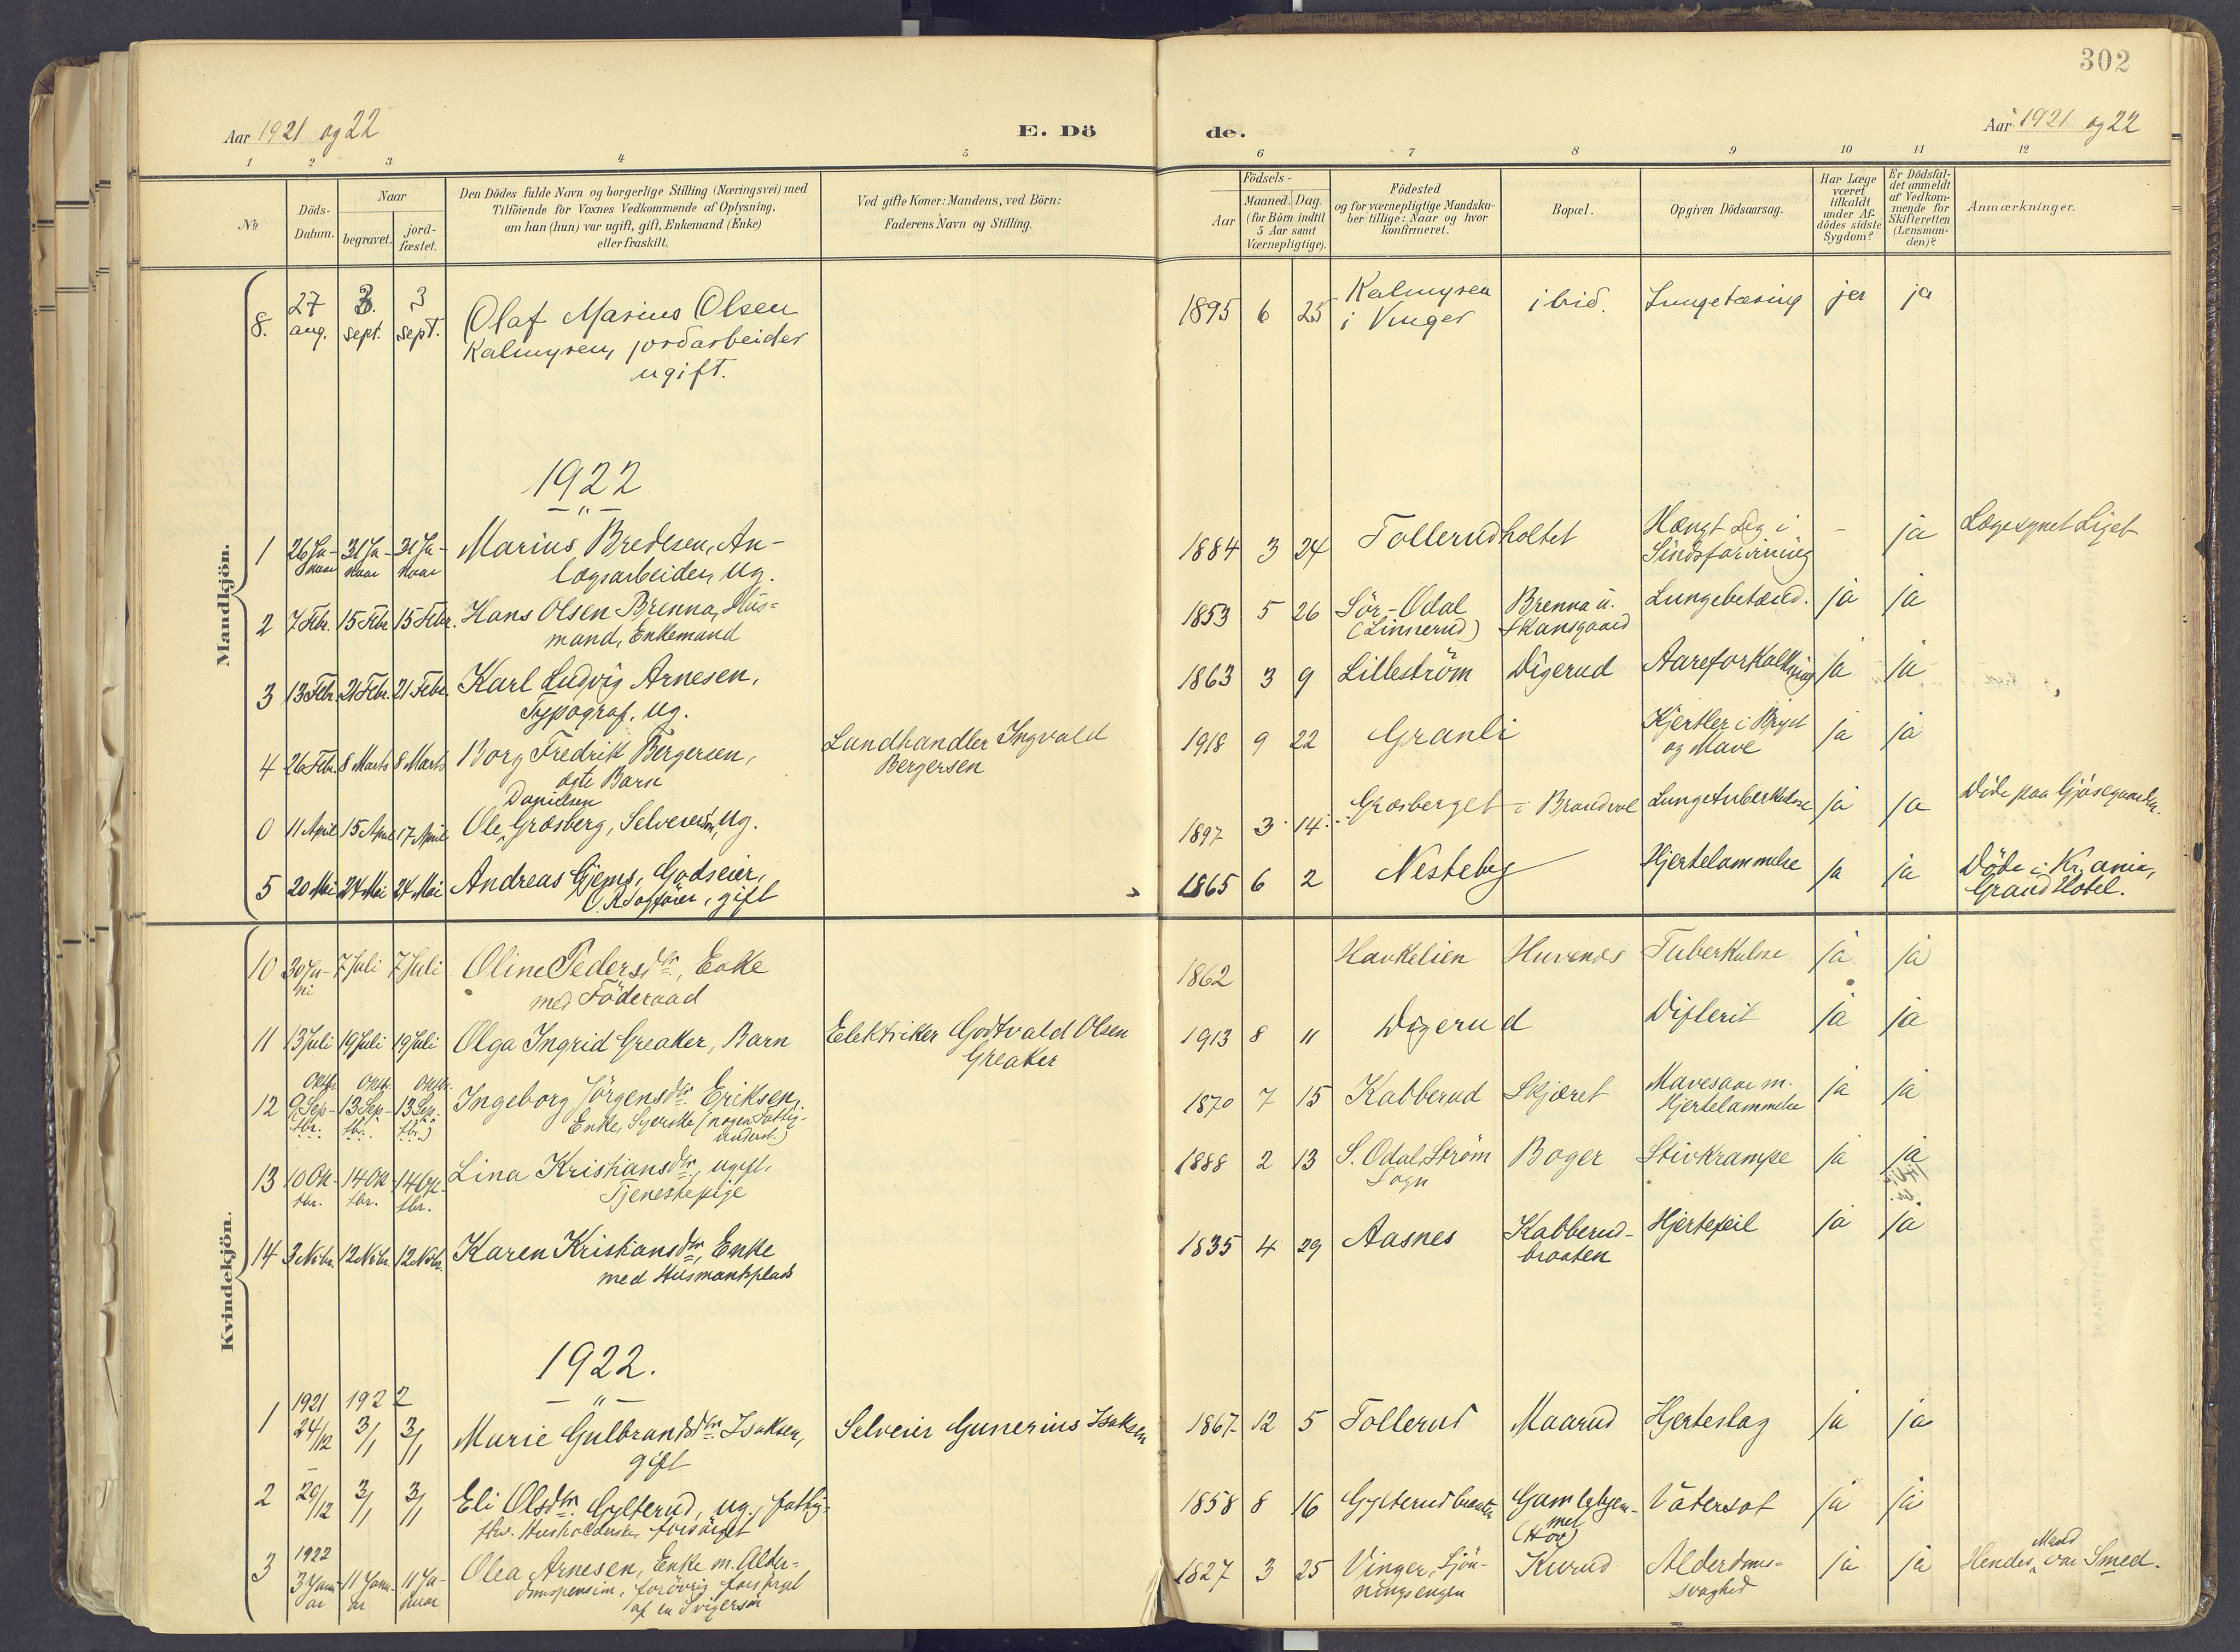 302
Aar 1921 og 22
E. Dö
de.
Aar 1921 og 22
1 2 3 4 5 6 7 8 9 10 11 12
№
Döds-
Datum.
Naar
begravet.
jord-
fæstet.
Den Dödes fulde Navn og borgerlige Stilling (Næringsvei) med
Tilföiende for Voxnes Vedkommende af Oplysning,
om han (hun) var ugift, gift, Enkemand (Enke)
eller fraskilt.
Ved gifte Koner: Mandens, ved Börn:
Faderens Navn og Stilling.
Födsels-
Aar
Maaned. Dag.
(for Börn indtil
5 Aar samt
Værnepligtige).
Födested
og for værnepligtige Mandska-
ber tillige: Naar og hvor
konfirmeret.
Bopæl.
Opgiven Dödsaarsag.
Har Læge
været
tilkaldt
under Af-
dödes sidste
Sygdom?
Er Dödsfal-
det anmeldt
af Vedkom-
mende for
Skifteretten
(Lensman-
den)?
Anmærkninger.
Mandkjön.
8. 27 aug. 3. sept. 3 sept. Olaf Marius Olsen
Kalmyren, jordarbeider
ugift.
1895 6 25 Kalmyren
i Vinger
ibid. Lungetæring ja ja
1922
1 26 Januar 31 Januar 31 Januar Marius Bredesen, An-
lægsarbeider, ug.
1884 3 24 Tollerudholtet Hængt seg i
Sindsforvirring
- ja Lægesynet Liget
2 7 Febr. 15 Febr. 15 Febr. Hans Olsen Brenna, Hus-
mand, Enkemand
1853 5 26 Sör-Odal
(Linnerud)
Brenna u.
Skansgaard
Lungebetænd. ja ja
3 13 Febr. 21 Febr. 21 Febr. Karl Ludvig Arnesen,
Typograf, ug.
1863 3 9 Lilleström Digerud Aareforkalkning ja ja
4 26 Febr. 8 Marts 8 Marts Borg Fredrik Bergersen,
ægte Barn
Landhandler Ingvald
Bergersen
1918 9 22 Granli Kjertler i Bryst
og Mave
ja ja
Danielsen
0 11 April 15 April 17 April Ole Græsberg, Selveiersön, ug.
1897 3 14 Græsberget i Brandval Lungetuberkulose ja ja Döde paa Gjøsegaarden.
5 20 Mai 24 Mai 24 Mai Andreas Gjems, Godseier,
O.R.Sagförer, gift
1865 6 2 Nesteby Hjertelammelse ja ja Döde i Kr.ania,
Grand Hotel.
Kvindekjön.
10 30 Juni 7 Juli 7 Juli Oline Pedersdtr., Enke
med Föderaad
1862 Haukelien Huvenes Tuberkulose ja ja
11 13 Juli 19 Juli 19 Juli Olga Ingrid Greaker, Barn
Elektriker Godtvald Olsen
Greaker
1913 8 11 Digerud Difterit ja ja
Oktbr. Oktbr. Oktbr.
12 9 Sep-tbr. 13 Sep-tbr. 13 Sep-tbr. Ingeborg Jörgensdtr. Eriksen,
Enke, Syerske (nogen Fattig-
underst.)
1870 7 15 Kabberud Skjæret Mavesaar m.
Hjertelammelse
ja ja
13 10 Oktbr. 14 Oktbr. 14 Oktbr. Lina Kristiansdtr., ugift,
Tjenestepige
1888 2 13 S. Odal, Ström
Sogn
Boger Stivkrampe ja ja
14 3 Nvbr. 12 Nvbr. 12 Nvbr. Karen Kristiansdtr., Enke
med Husmandsplads
1835 4 29 Aasnes Kabberud-
braaten
Hjertefeil ja ja
1922.
1921 1922
1 24/12 3/1 3/1 Marie Gulbrandsdtr. Isaksen,
gift
Selveier Gunerius Isaksen
1867 12 5 Tollerud Maarud Hjerteslag ja ja
2 29/12 3/1 3/1 Eli Olsdtr. Gylterud, ug., fattig-
forsörget
1858 8 16 Gylterudbraaten Gamlehjem-
met
Vatersot ja ja
1922
3 3 Januar 11 Januar 11 Januar Olea Arnesen, Enke m. Alder-
domspension, forövrig forsörget
af en Svigersön
1827 3 25 Vinger, Sjön-
ningsengen
Kurud Alderdoms-
svaghed
ja ja Hendes Mand var Smed.